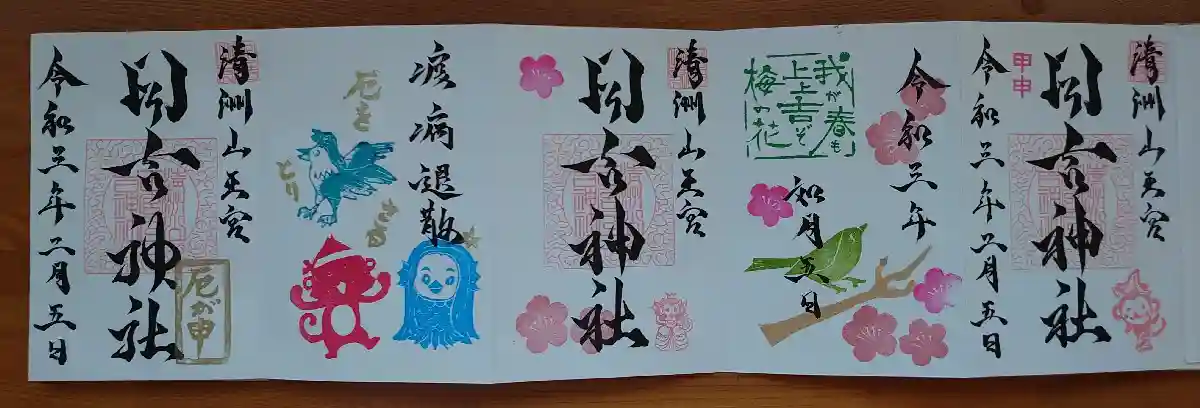 清洲山王宮
日吉神社
甲申
令和三年二月五日
令和三年
如月五日
我が春も
上上吉ぞ
梅の花
清洲山王宮
日吉神社
疫病退散
厄き
とり
さる
清洲山王宮
日吉神社
厄が申
令和三年二月五日